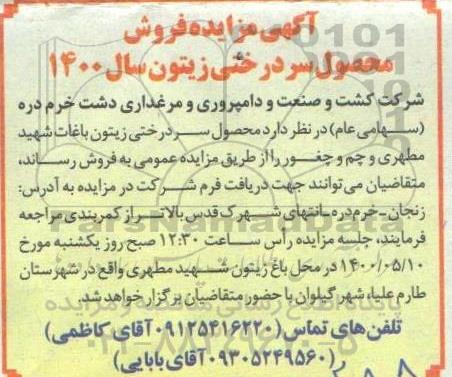 آگهی مزایده فروش
محصول سر درختی زیتون سال ۱۴۰۰
شرکت کشت و صنعت و دامپروری و مرغداری دشت خرم دره
(سهامی عام) در نظر دارد محصول سر درختی زیتون باغات شهید
مطهری و چم و چغور را از طریق مزایده عمومی به فروش رساند،
متقاضیان می توانند جهت دریافت فرم شرکت در مزایده به آدرس:
زنجان-خرم‌دره-انتهای شهرک قدس بالاتر از کمربندی مراجعه
فرمایند، جلسه مزایده رأس ساعت ۱۲:۳۰ صبح روز یکشنبه مورخ
۱۴۰۰/۰۵/۱۰ در محل باغ زیتون شهید مطهری واقع در شهرستان
طارم علیا، شهر گیلوان با حضور متقاضیان برگزار خواهد شد.
تلفن های تماس (۰۹۱۲۵۴۱۶۲۲۰ آقای کاظمی)
(۰۹۳۰۵۲۴۹۵۶۰ آقای بابایی)